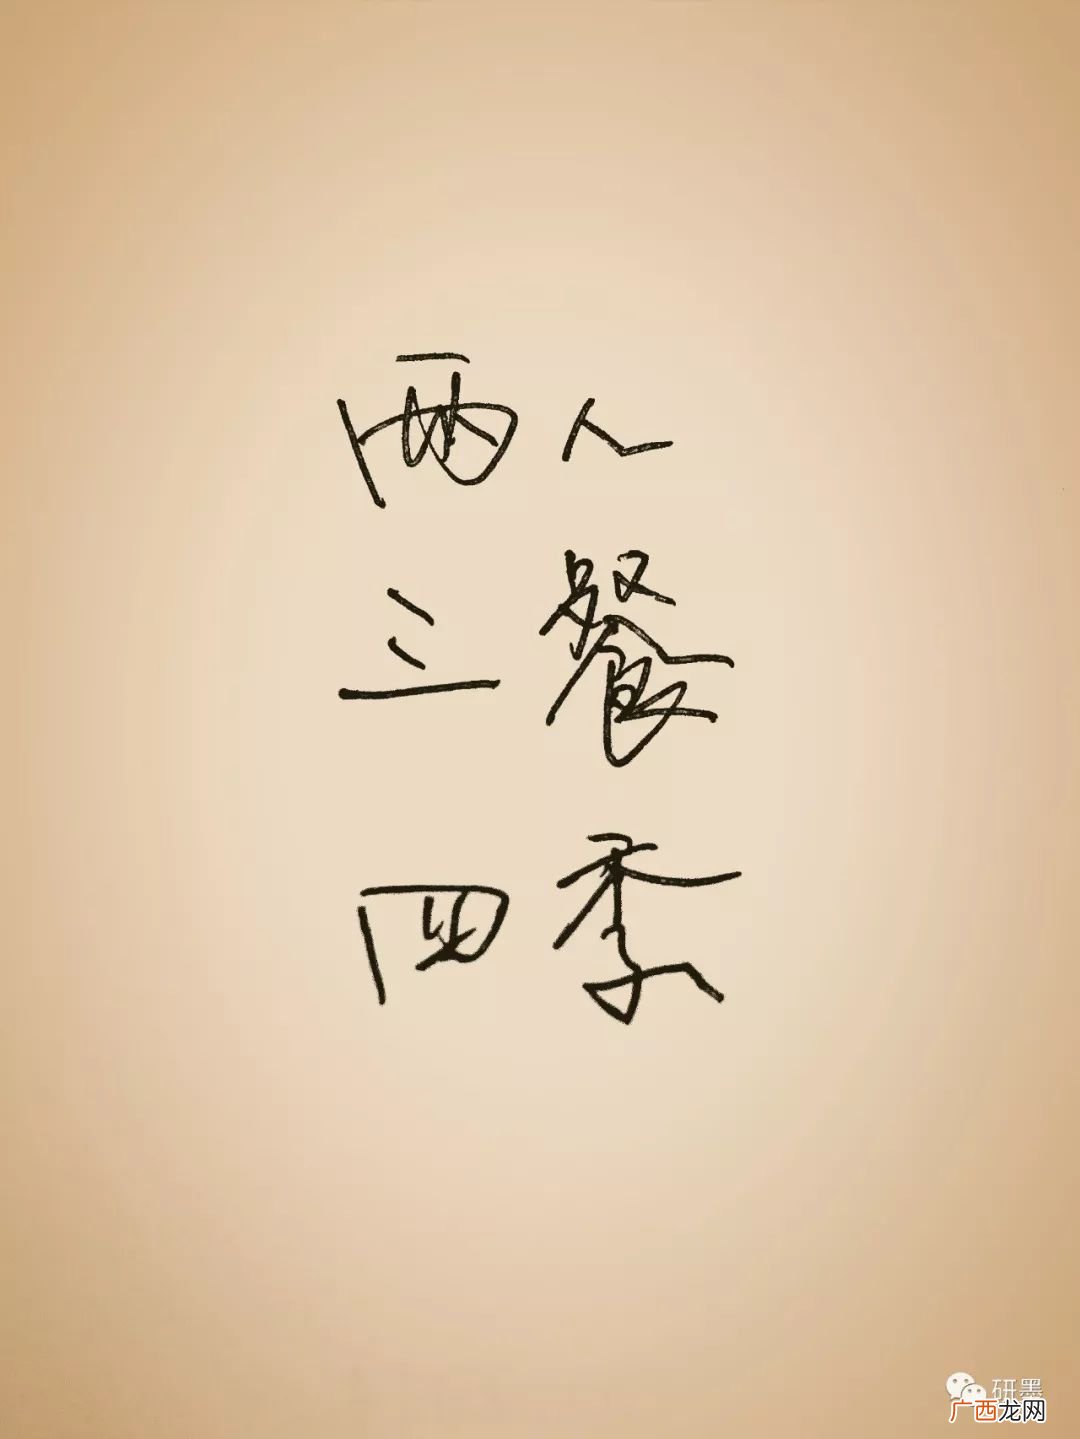 两人
三餐
四季
研墨
广西龙网